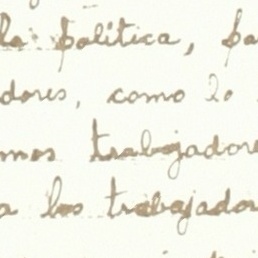 la política, pa
dores, como lo
mos trabajadore
a los trabajador